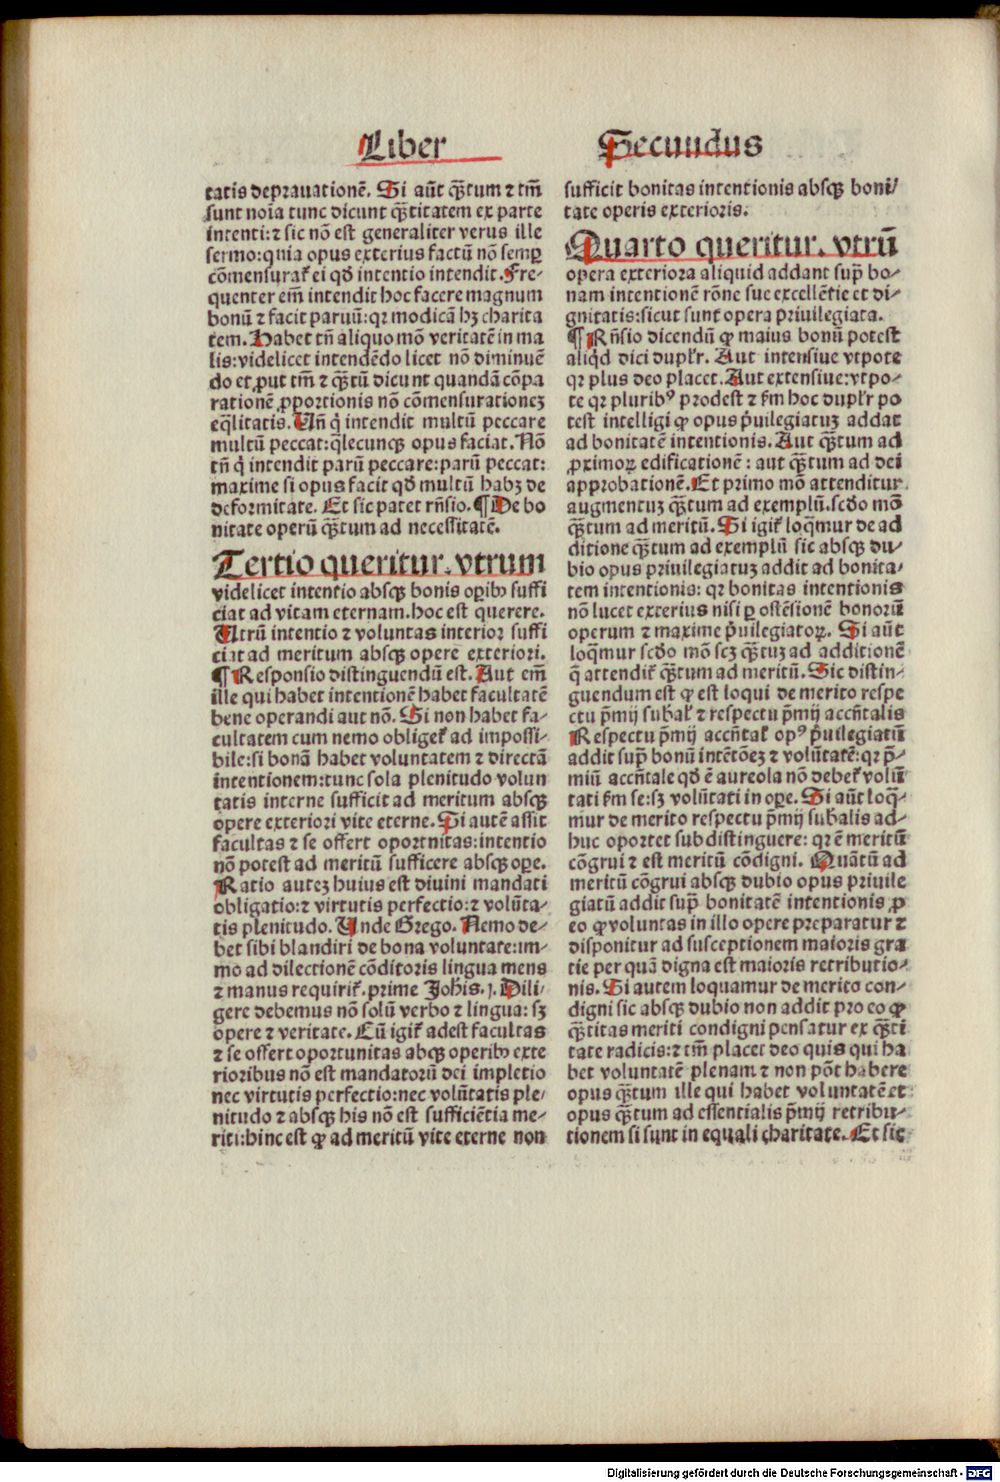 Liber Secundus
tatis deprauationē. Si aūt qȝ̄tum ⁊ tm̄
sunt noīa tunc dicunt qȝ̄titatem ex parte
intenti:⁊ sic nō est generaliter verus ille
sermo:quia opus exterius factū nō semꝑ
cōmensurat᷑ ei qd̄ intentio intendit. Fre-
quenter em̄ intendit hoc facere magnum
bonū ⁊ facit paruū:qꝛ modicā hȝ charita
tem. Habet tn̄ aliquo mō veritatē in ma
lis:videlicet intendēdo licet nō diminuē
do et ꝓut tm̄ ⁊ qȝ̄tū dicunt quandā cōpa
rationē ꝓportionis nō cōmensurationeȝ
eq̄litatis. Un̄ q̇ intendit multū peccare
multū peccat:q̄lecunqȝ opus faciat. Nō
tn̄ q̇ intendit parū peccare:parū peccat:
maxime si opus facit qd̄ multū habȝ de
deformitate. Et sic patet rn̄sio. ¶ De bo
nitate operū qȝ̄tum ad necessitatē.
Tertio queritur. vtrum
videlicet intentio absqȝ bonis oꝑibꝰ suffi
ciat ad vitam eternam. hoc est querere.
Utrū intentio ⁊ voluntas interior suffi
ciat ad meritum absqȝ opere exteriori.
¶ Responsio distinguendū est. Aut em̄
ille qui habet intentionē habet facultatē
bene operandi aut nō. Si non habet fa-
cultatem cum nemo obliget᷑ ad impossi-
bile:si bonā habet voluntatem ⁊ directā
intentionem:tunc sola plenitudo volun
tatis interne sufficit ad meritum absqȝ
opere exteriori vite eterne. Si autē assit
facultas ⁊ se offert oportnitas:intentio
nō potest ad meritū sufficere absqȝ oꝑe.
Ratio auteȝ huius est diuini mandati
obligatio:⁊ virtutis perfectio:⁊ volūta-
tis plenitudo. Unde Grego. Nemo de-
bet sibi blandiri de bona voluntate:im-
mo ad dilectionē cōditoris lingua mens
⁊ manus requirit᷑. prime Joh̄is. j. Dili-
gere debemus nō solū verbo ⁊ lingua: sȝ
opere ⁊ veritate. Cū igit᷑ adest facultas
⁊ se offert oportunitas abqȝ operibꝰ exte
rioribus nō est mandatorū dei impletio
nec virtutis perfectio:nec volūtatis ple-
nitudo ⁊ absqȝ his nō est sufficiētia me-
riti:hinc est ꝙ ad meritū vite eterne non
sufficit bonitas intentionis absqȝ boni-
tate operis exterioris.
Quarto queritur. vtrū
opera exteriora aliquid addant sup̄ bo-
nam intentionē rōne sue excellētie et di-
gnitatis:sicut sunt opera priuilegiata.
¶ Rn̄sio dicendū ꝙ maius bonū potest
aliqd̄ dici duplr̄. Aut intensiue vtpote
qꝛ plus deo placet. Aut extensiue:vtpo-
te qꝛ pluribꝰ prodest ⁊ fm̄ hoc duplr̄ po
test intelligi ꝙ opus p̄uilegiatuȝ addat
ad bonitatē intentionis. Aut qȝ̄tum ad
ꝓximoꝝ edificationē : aut qȝ̄tum ad dei
approbationē. Et primo mō attenditur
augmentuȝ qȝ̄tum ad exemplū. scd̄o mō
qȝ̄tum ad meritū. Si igit᷑ loq̄mur de ad
ditione qȝ̄tum ad exemplū sic absqȝ du-
bio opus priuilegiatuȝ addit ad bonita-
tem intentionis: qꝛ bonitas intentionis
nō lucet exterius nisi ꝑ ostēsionē bonorū
operum ⁊ maxime p̄uilegiatoꝝ. Si aūt
loq̄mur scd̄o mō scȝ qȝ̄tuȝ ad additionē
q̄ attendit᷑ qȝ̄tum ad meritū. Sic distin-
guendum est ꝙ est loqui de merito respe
ctu p̄mij suba̅l᷑ ⁊ respectu p̄mij accn̄talis
Respectu p̄mij accn̄tal᷑ opꝰ p̄uilegiatū
addit sup̄ bonū intētōeȝ ⁊ volūtatē:qꝛ p̄-
miū accn̄tale qd̄ ē aureola nō debet᷑ volū
tati fm̄ se:sȝ volūtati in oꝑe. Si aūt loq̄-
mur de merito respectu p̄mij sub̄alis ad-
huc oportet subdistinguere: qꝛ ē meritū
cōgrui ⁊ est meritū cōdigni. Quātū ad
meritū cōgrui absqȝ dubio opus priuile
giatū addit sup̄ bonitatē intentionis ꝓ
eo ꝙ voluntas in illo opere preparatur ⁊
disponitur ad susceptionem maioris gra
tie per quā digna est maioris retributio-
nis. Si autem loquamur de merito con-
digni sic absqȝ dubio non addit pro eo ꝙ
qȝ̄titas meriti condigni pensatur ex qȝ̄ti
tate radicis:⁊ tm̄ placet deo quis qui ha
bet voluntatē plenam ⁊ non pōt habere
opus qȝ̄tum ille qui habet voluntatē et
opus qȝ̄tum ad essentialis p̄mij retribu-
tionem si sunt in equali charitate. Et sic
Digitalisierung gefördert durch die Deutsche Forschungsgemeinschaft - DFG